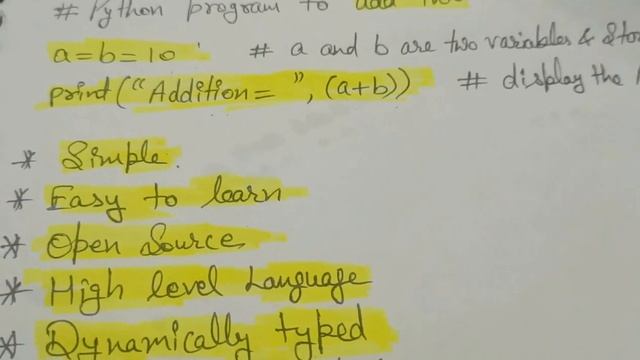 # Python program to add
a=b=10 # a and b are two variables &
print("Addition= ", (a+b)) # display the
* Simple.
* Easy to learn
* Open Source
* High level Language
* Dynamically typed